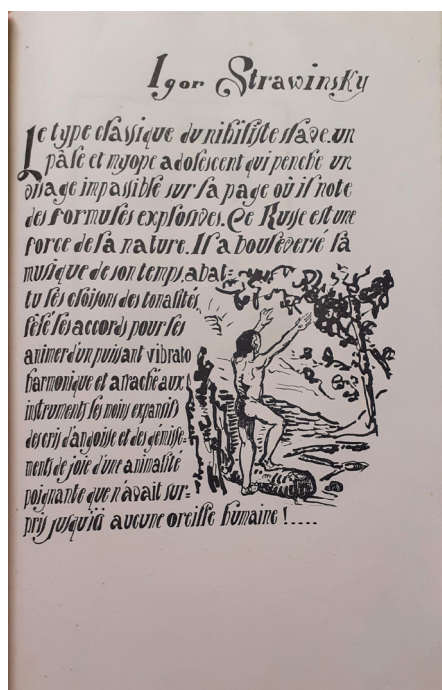 Igor Strawinsky
Le type classique du nihiliste slave. un
pâle et myope adolescent qui penche un
visage impassible sur la page où il note
des formules explosives. Ce Russe est une
force de la nature. Il a bouleversé la
musique de son temps, abat-
tu les cloisons des tonalités,
fêlé les accords pour les
animer d'un puissant vibrato
harmonique et arraché aux
instruments les moins expansifs
des cris d'angoisse et des gémisse-
ments de joie d'une animalité
poignante que n'avait sur-
pris jusqu'ici aucune oreille humaine !....